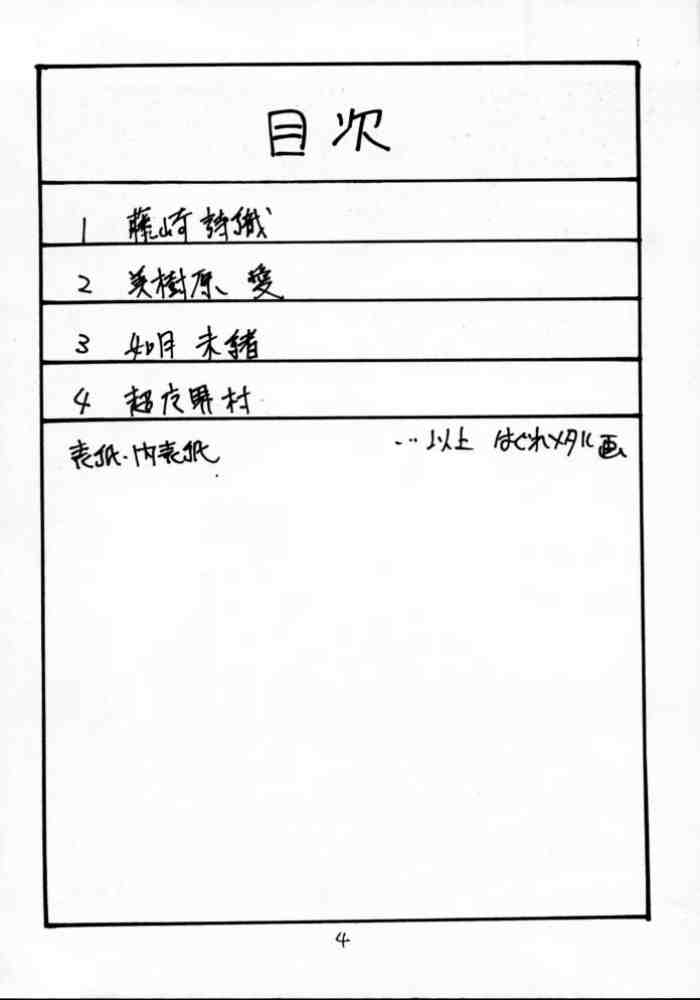 目次
1 藤崎詩織
2 美樹原 愛
3 如月 未緒
4 超在界村
表紙・内表紙 …以上 はぐれメタル画
4